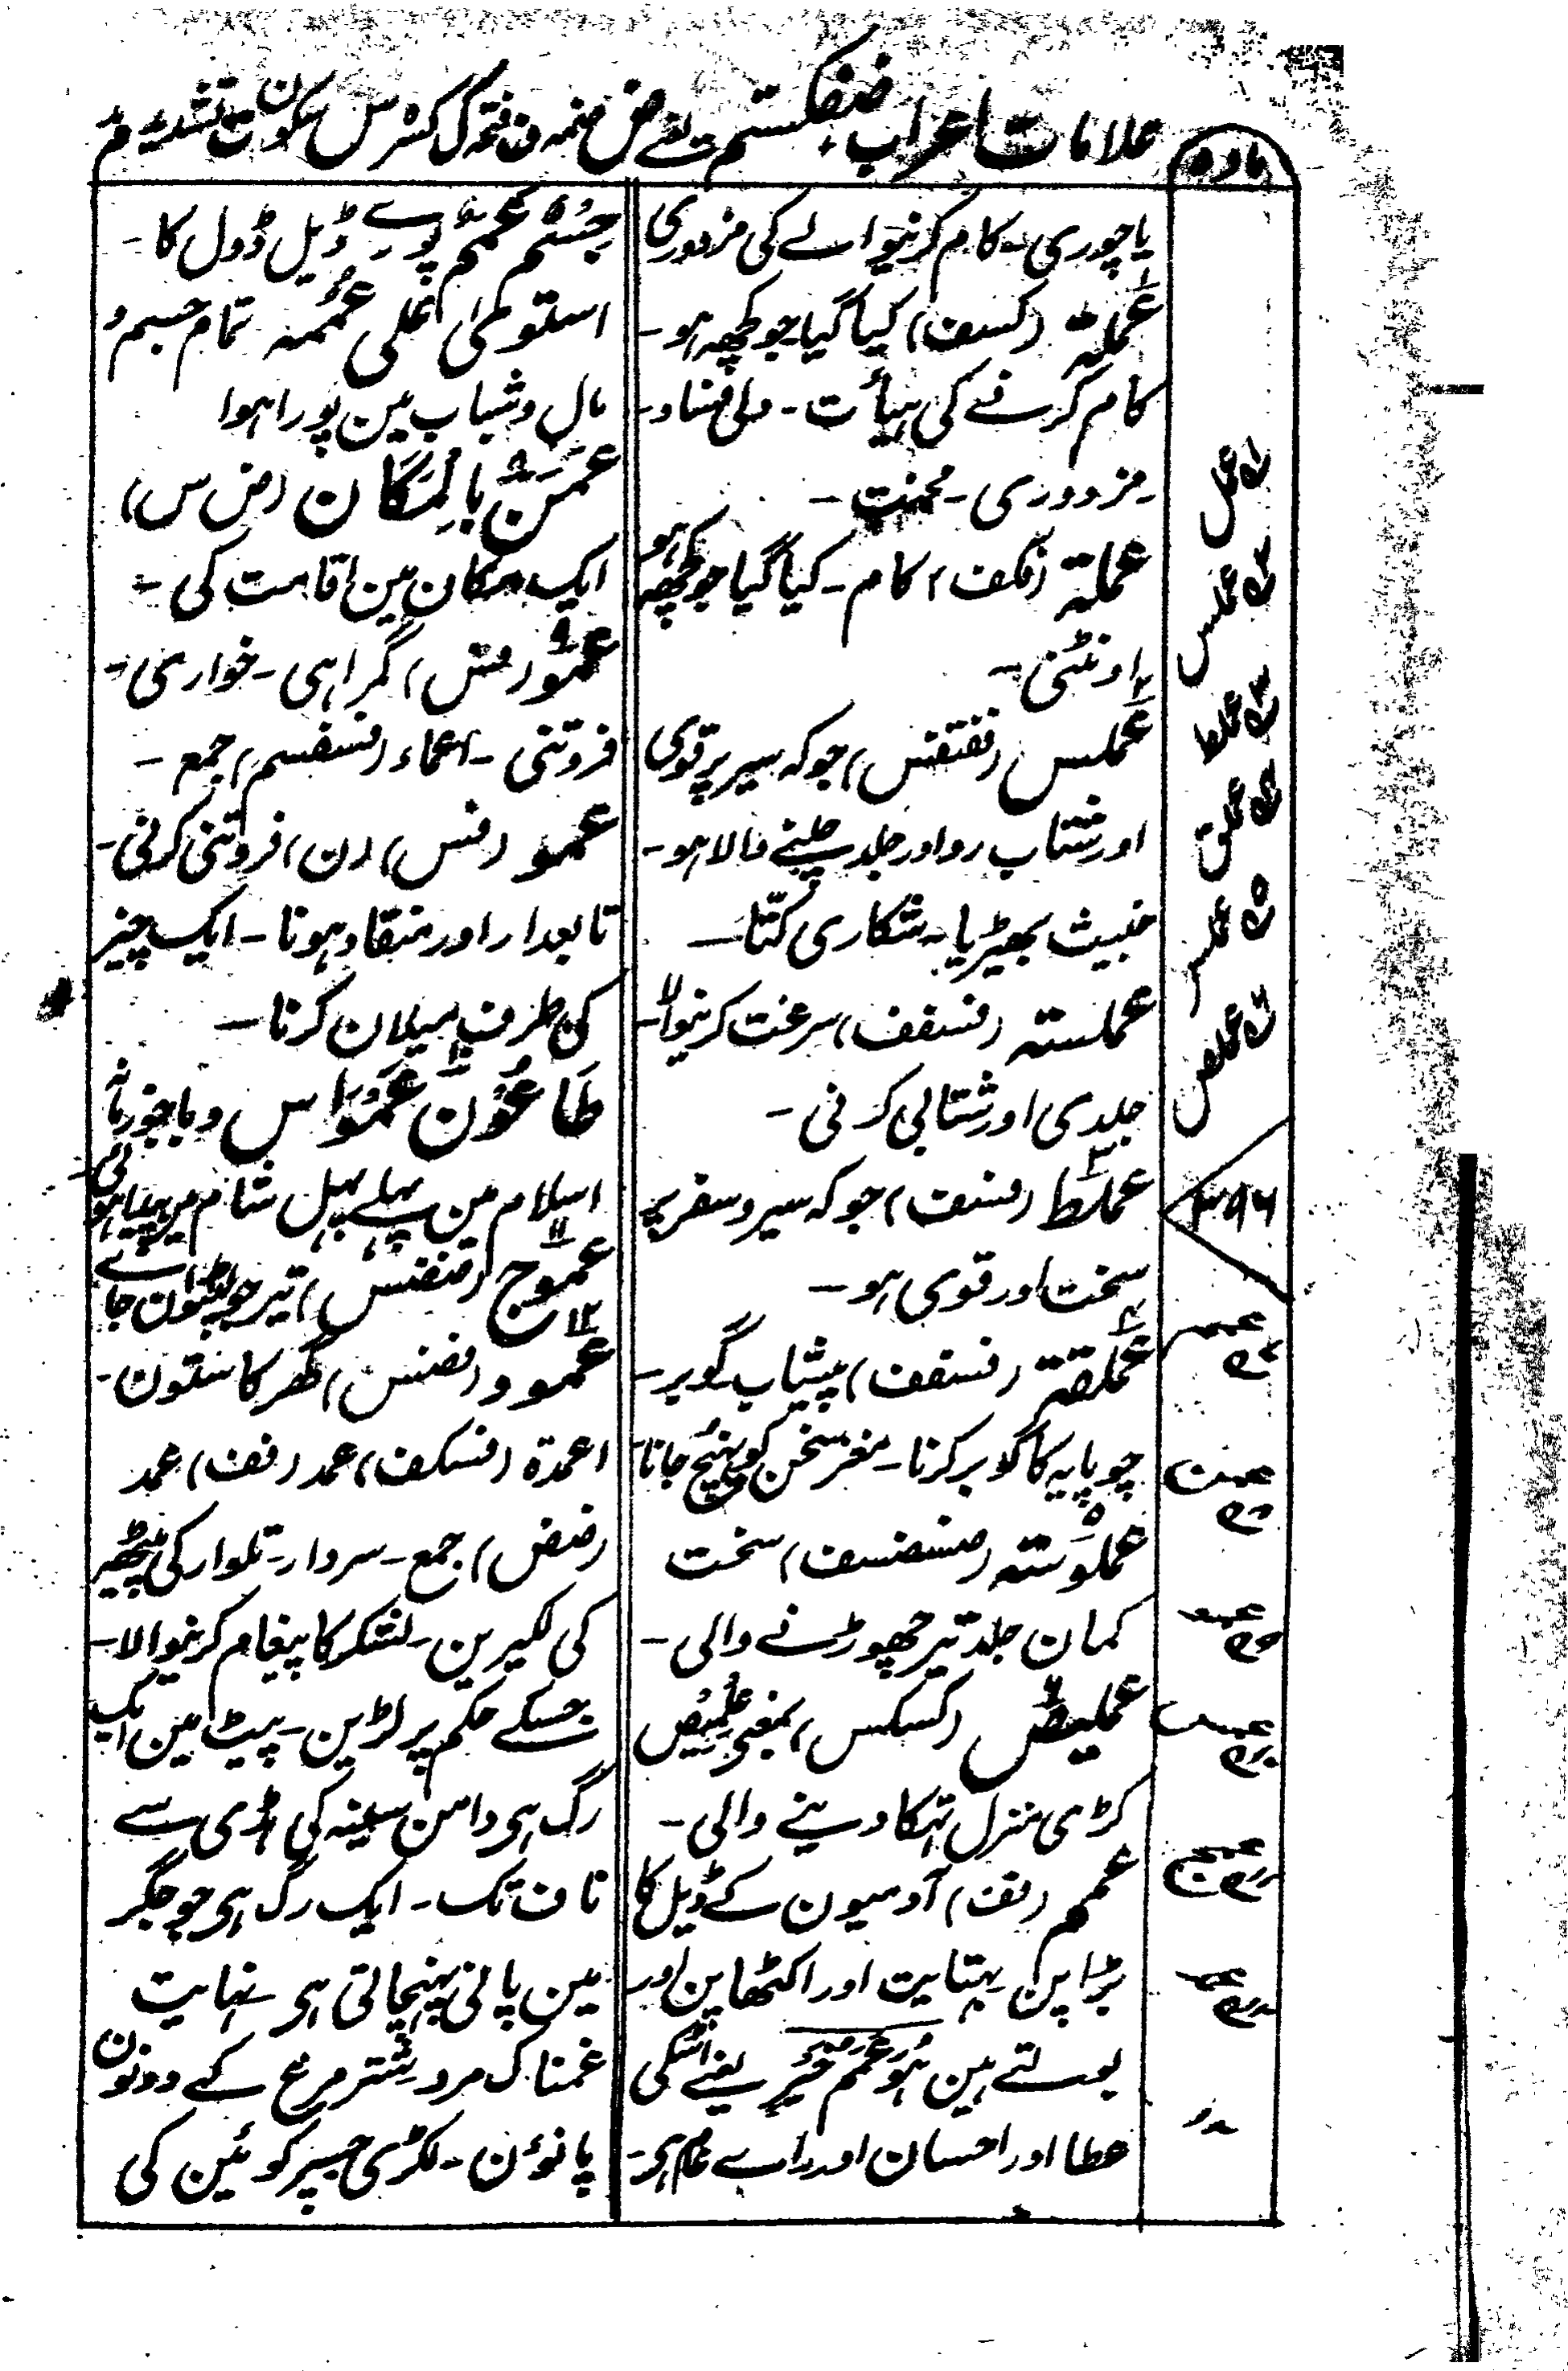 علامات اعراب ضفکستم یعنے ض ضمہ ف فتحہ ک کسرہ س سکون ت تشدید م
مادہ
یا چوری۔ کام کرنیوالے کی مزدوری
عملۃ (کسف) کیا گیا جو کچھ ہو۔
کام کرنے کی ہیأت۔
مزدوری۔ محنت۔
عملۃ (فکف) کام۔ کیا گیا جو کچھ ہو
اونٹنی۔
عملس (ففتفس) جو کہ سیر پر قوی
اور شتاب رو اور جلد چلنے والا ہو۔
خبیث بھیڑیا۔ شکاری کتّا۔
عملسۃ (فسففف) سرعت کرنیوالا۔
جلدی اور شتابی کرنی۔
عملط جو کہ سیر و سفر پر
سخت اور قوی ہو۔
عملقۃ (فسفف) پیشاب گوبر۔
چوپایہ کا گوبر کرنا۔ مغز سخن کو پہنچ جانا۔
عملوسۃ (ضسضسف) سخت
کمان جلد تیر چھوڑنے والی۔
عملیص (کسکس) بمعنی عِلْمِیْص
کڑی منزل تہکا دینے والی۔
عمم (فف) آدمیون کے ڈیل کا
بڑا پن بہتایت اور اکٹھا پن اور
بولتے ہین ہُوَ عَمَمُ خَیْرٍ یعنے اسکی
عطا اور احسان اور داب عام ہی۔
جِسْمٌ عَمَمٌ پورے ڈیل ڈول کا۔
استوی علی عممہ تمام جسم و
مال و شباب مین پورا ہوا
عَمَنَ بِالْمَکَان (ض س)
ایک مکان مین اقامت کی۔
عمو (فس) گمراہی۔ خواری۔
فروتنی۔ اعماء (فسفسم) جمع۔
عمو (فس) (ن) فروتنی کرنی۔
تابعدار اور منقاد ہونا۔ ایک چیز
کی طرف میلان کرنا۔
طَاعُوْنَ عَمَوَاس وبا جو زمانہ
اسلام مین پہلے پہل شام مین پیدا ہوئی
عموج (فضفس) تیر جو
عمود (فضس) گھر کا ستون۔
اعمدۃ (فسکف) عمد (فف) عمد
(ضض) جمع۔ سردار۔ تلوار کی پیٹھ
کی لکیرین۔ لشکر کا پیغام کرنیوالا۔
جسکے حکم پر لڑین۔ پیٹ مین ایک
رگ ہی دامن سینہ کی ہڈی سے
ناف تک۔ ایک رگ ہی جو جگر
مین پانی پہنچاتی ہی نہایت
غمناک مرد شتر مرغ کے دونون
پانوٴن۔ لکڑی جسپر کوئین کی
عمل
عملس
عملط
عملق
عملس
عملص
عمم
عمن
عمو
عمس
عمج
عمد